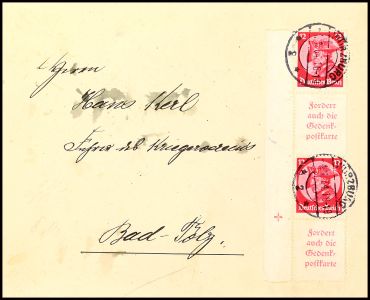 Herrn
Hans Kerl
Führer des
Bad-Tölz.
12
Deutsches Reich
Fordert
auch die
Gedenk-
postkarte
12
Deutsches Reich
Fordert
auch die
Gedenk-
postkarte